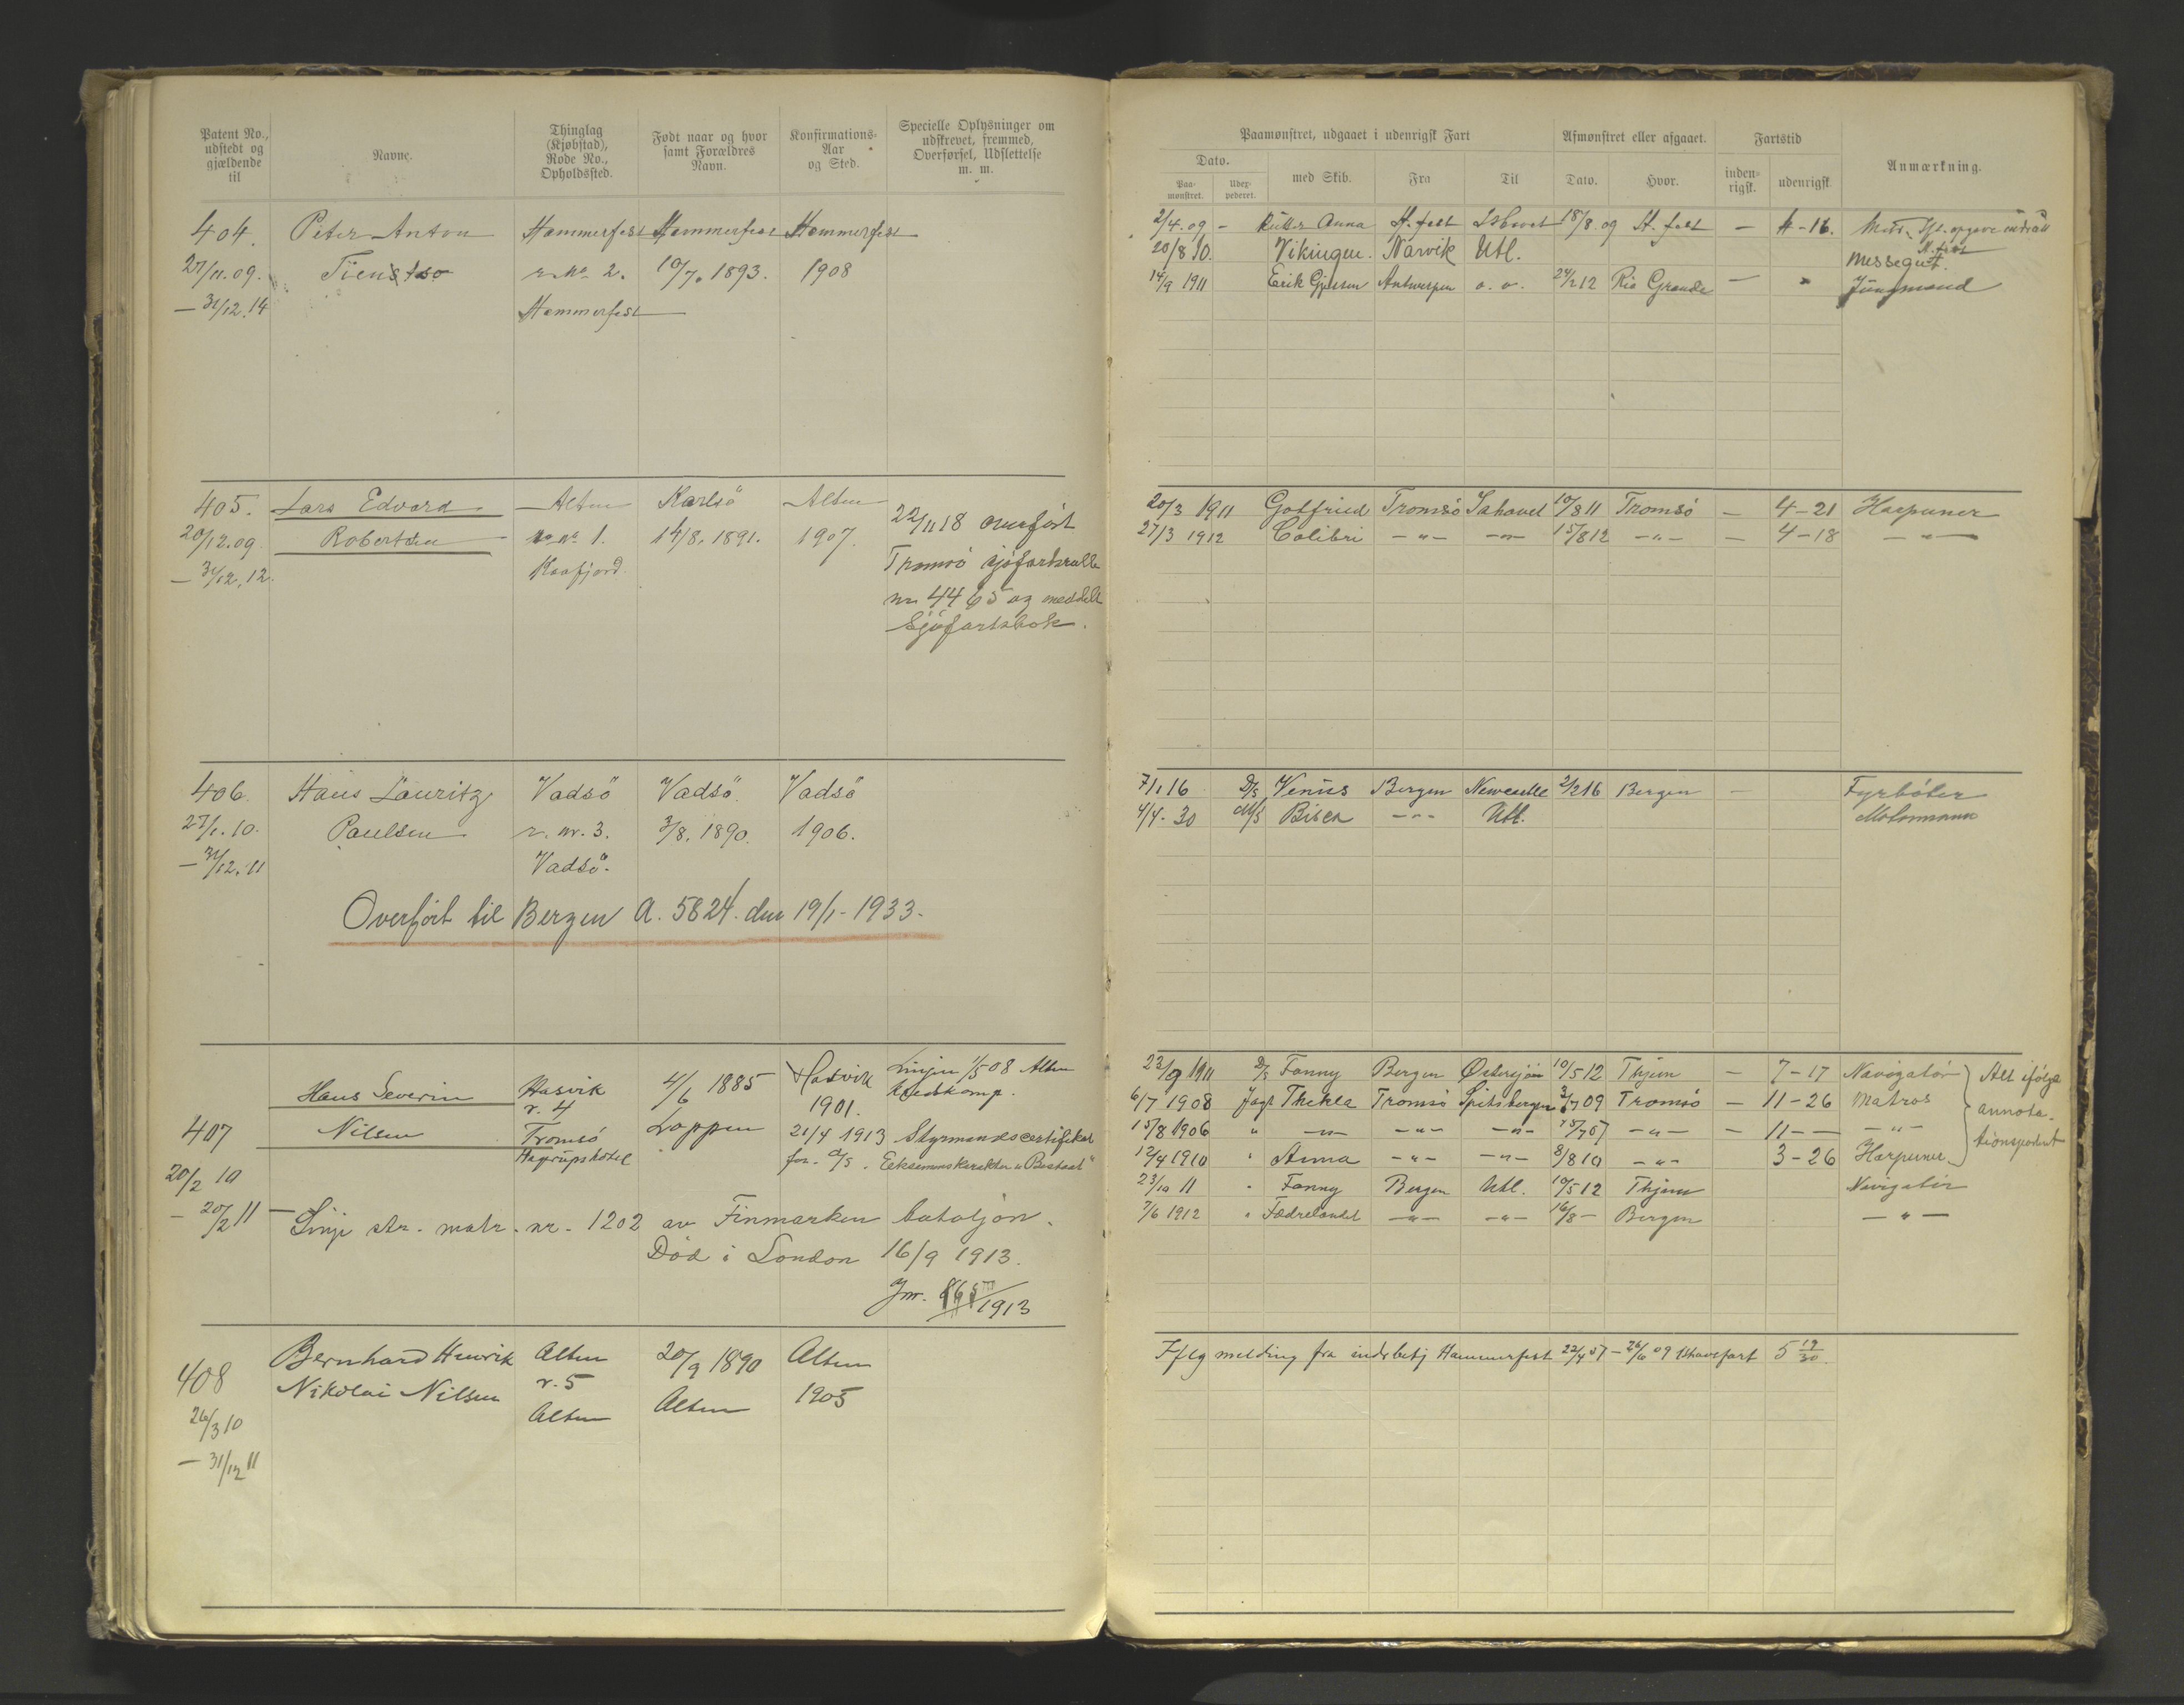 Patent No., udstedt og gjældende til
Navne.
Thinglag (Kjøbstad), Rode No., Opholdssted.
Født naar og hvor samt Forældres Navn.
Konfirmations-Aar og Sted.
Specielle Oplysninger om udskrevet, fremmed, Overførsel, Udslettelse m. m.
404. Peter Anton Hammerfest Hammerfest Hammerfest
27/11.09. Tiensto r. No 2. 10/7. 1893. 1908
— 31/12.14 Hammerfest
405. Lars Edvard Alten Karlsö Alten 22/11 18 overført
20/12.09 Robertsen r. No 1. 14/8. 1891. 1907. Tromsö sjöfartsrulle
— 31/12.12. Kaafjord nr 4465 og meddelt
Sjöfartsbok.
406. Hans Lauritz Vadsö Vadsö. Vadsö
27/1.10. Paulsen r. nr. 3. 3/8. 1890. 1906.
— 31/12.11 Vadsö.
Overført til Bergen A. 5824. den 19/1-1933.
Hans Severin Hasvik 4/6 1885 Hasvik Linjen 1/5 08 Alten
r. 4 1901. Kredskomp.
407 Nilsen Tromsö Loppen 21/4 1913 Styrmandscertifikat
Hagrupshotel for Eksamenskarakter "Bestaat"
20/2 10
— 20/2 11 — Linje str. matr. nr. 1202 av Finmarken bataljon.
Död i London 16/9 1913.
Jnr. 1913
Bernhard Henrik Alten 20/9 1890 Alten
408 Nikolai Nilsen r. 5 Alten 1905
26/3 10 Alten
— 31/12 11
Paamønstret, udgaaet i udenrigsk Fart
Afmønstret eller afgaaet.
Fartstid
Anmærkning.
Dato.
Paa-mønstret.
Udex-pederet.
med Skib.
Fra
Til
Dato.
Hvor.
inden-rigsk.
udenrigsk.
2/4.09 - Kutter Anna H.fest Ishavet 18/8 09 H.fest — 4-16.
20/8 10. Vikingen. Narvik Utl. Messegut.
14/9 1911 Erik Gjessen Antwerpen o. o. 24/2 12 Rio Grande — " Jungmand
20/3 1911 Gotfried Tromsö Ishavet 10/8 11 Tromsö — 4-21 Harpuner
27/3 1912 Colibri -"- -"- 15/8 12 -"- — 4-18 -"-
7/1 16 D/S Venus Bergen Newcastle 2/2 16 Bergen — Fyrböter
4/4-30 M/S Bisca -"- Utl. Motormann
23/9 1911 D/S Fanny Bergen Østersjön 10/5 12 Thjem — 7-17 Navigatör } Alt ifölge
6/7 1908 Jagt Thekla Tromsö Spitsbergen 3/7 09 Tromsö — 11-26 Matros annota-
15/8 1906 " -"- -"- -"- -"- — 11-— -"- tionsprotokol
12/4 1910 " Anna -"- -"- 8/8 10 -"- 3-26 Harpuner
23/10 11 " Fanny Bergen Utl. 10/5 12 Thjem Navigatör
7/6 1912 " Fædrelandet -"- -"- 16/8 - Bergen -"-
Iflg melding fra indrbetj Hammerfest 22/4 07 - 26/6 09 Ishavsfart 5 19/30.